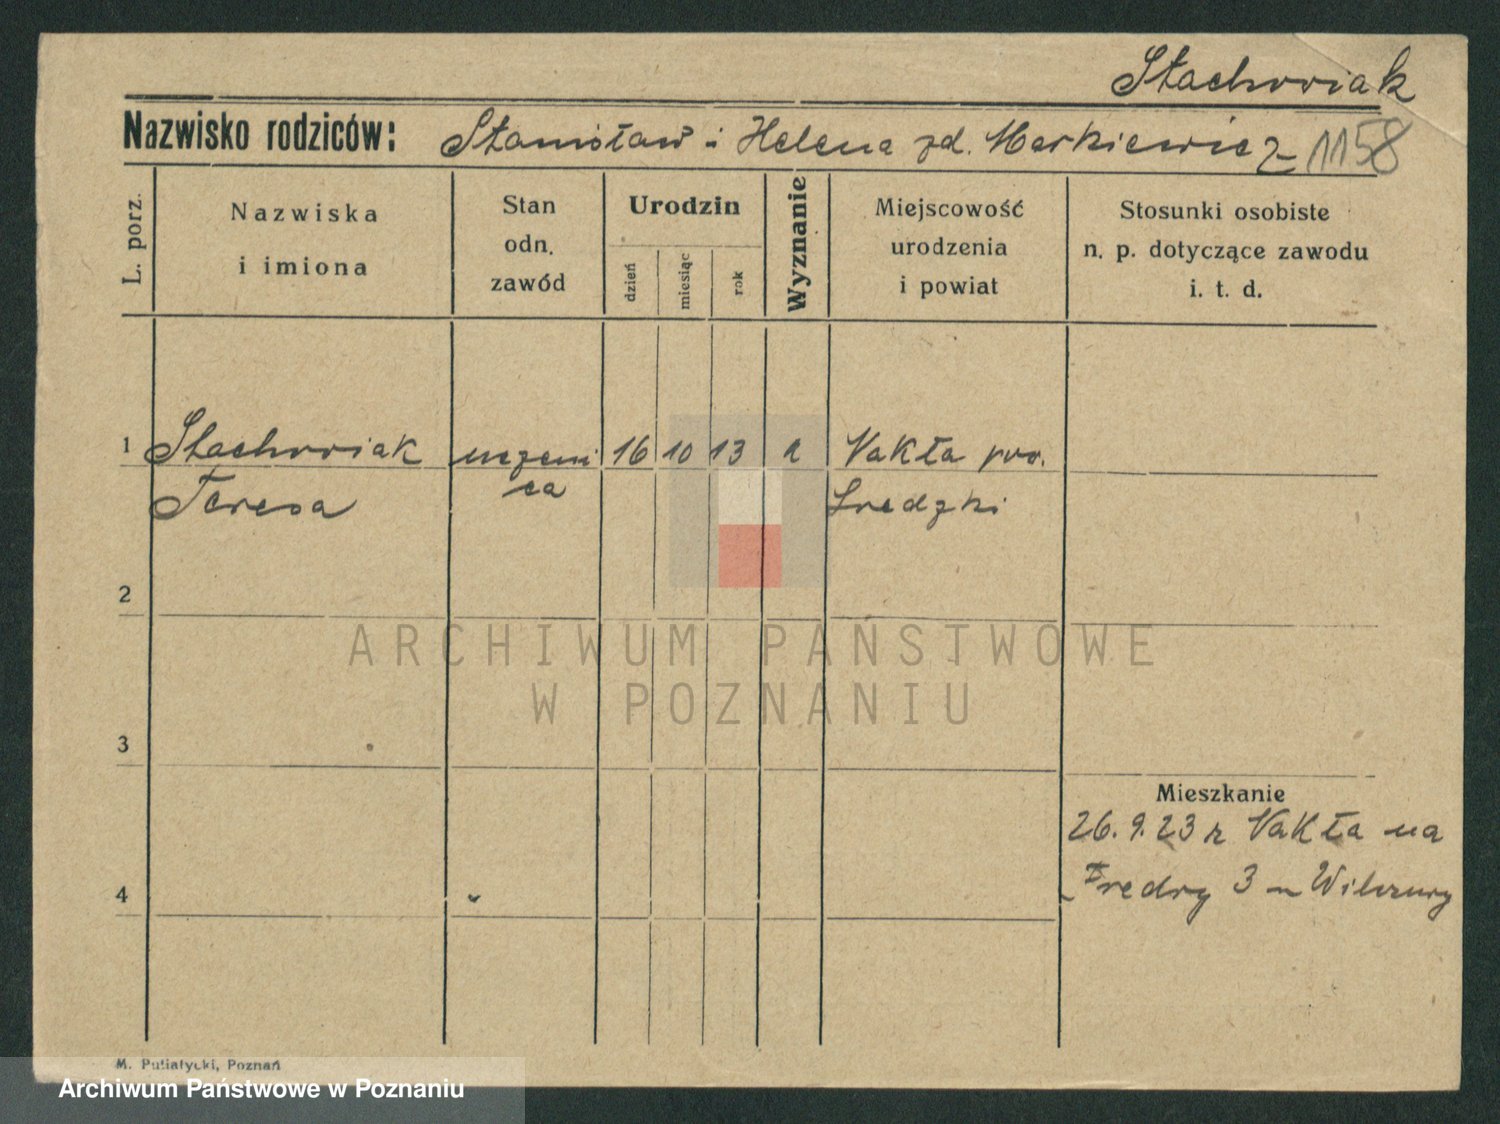 Stachowiak
Nazwisko rodziców: Stanisław i Helena zd. Markiewicz 1158
L. porz.
Nazwiska
i imiona
Stan
odn.
zawód
Urodzin
dzień
miesiąc
rok
Wyznanie
Miejscowość
urodzenia
i powiat
Stosunki osobiste
n. p. dotyczące zawodu
i. t. d.
1 Stachowiak uczeni 16 10 13 Vakła pow.
Teresa ca Sredzki
2
ARCHIWUM PAŃSTWOWE
W POZNANIU
3
Mieszkanie
26. 9. 23 z Vakła na
Fredry 3
4
M. Putiatycki, Poznań
Archiwum Państwowe w Poznaniu